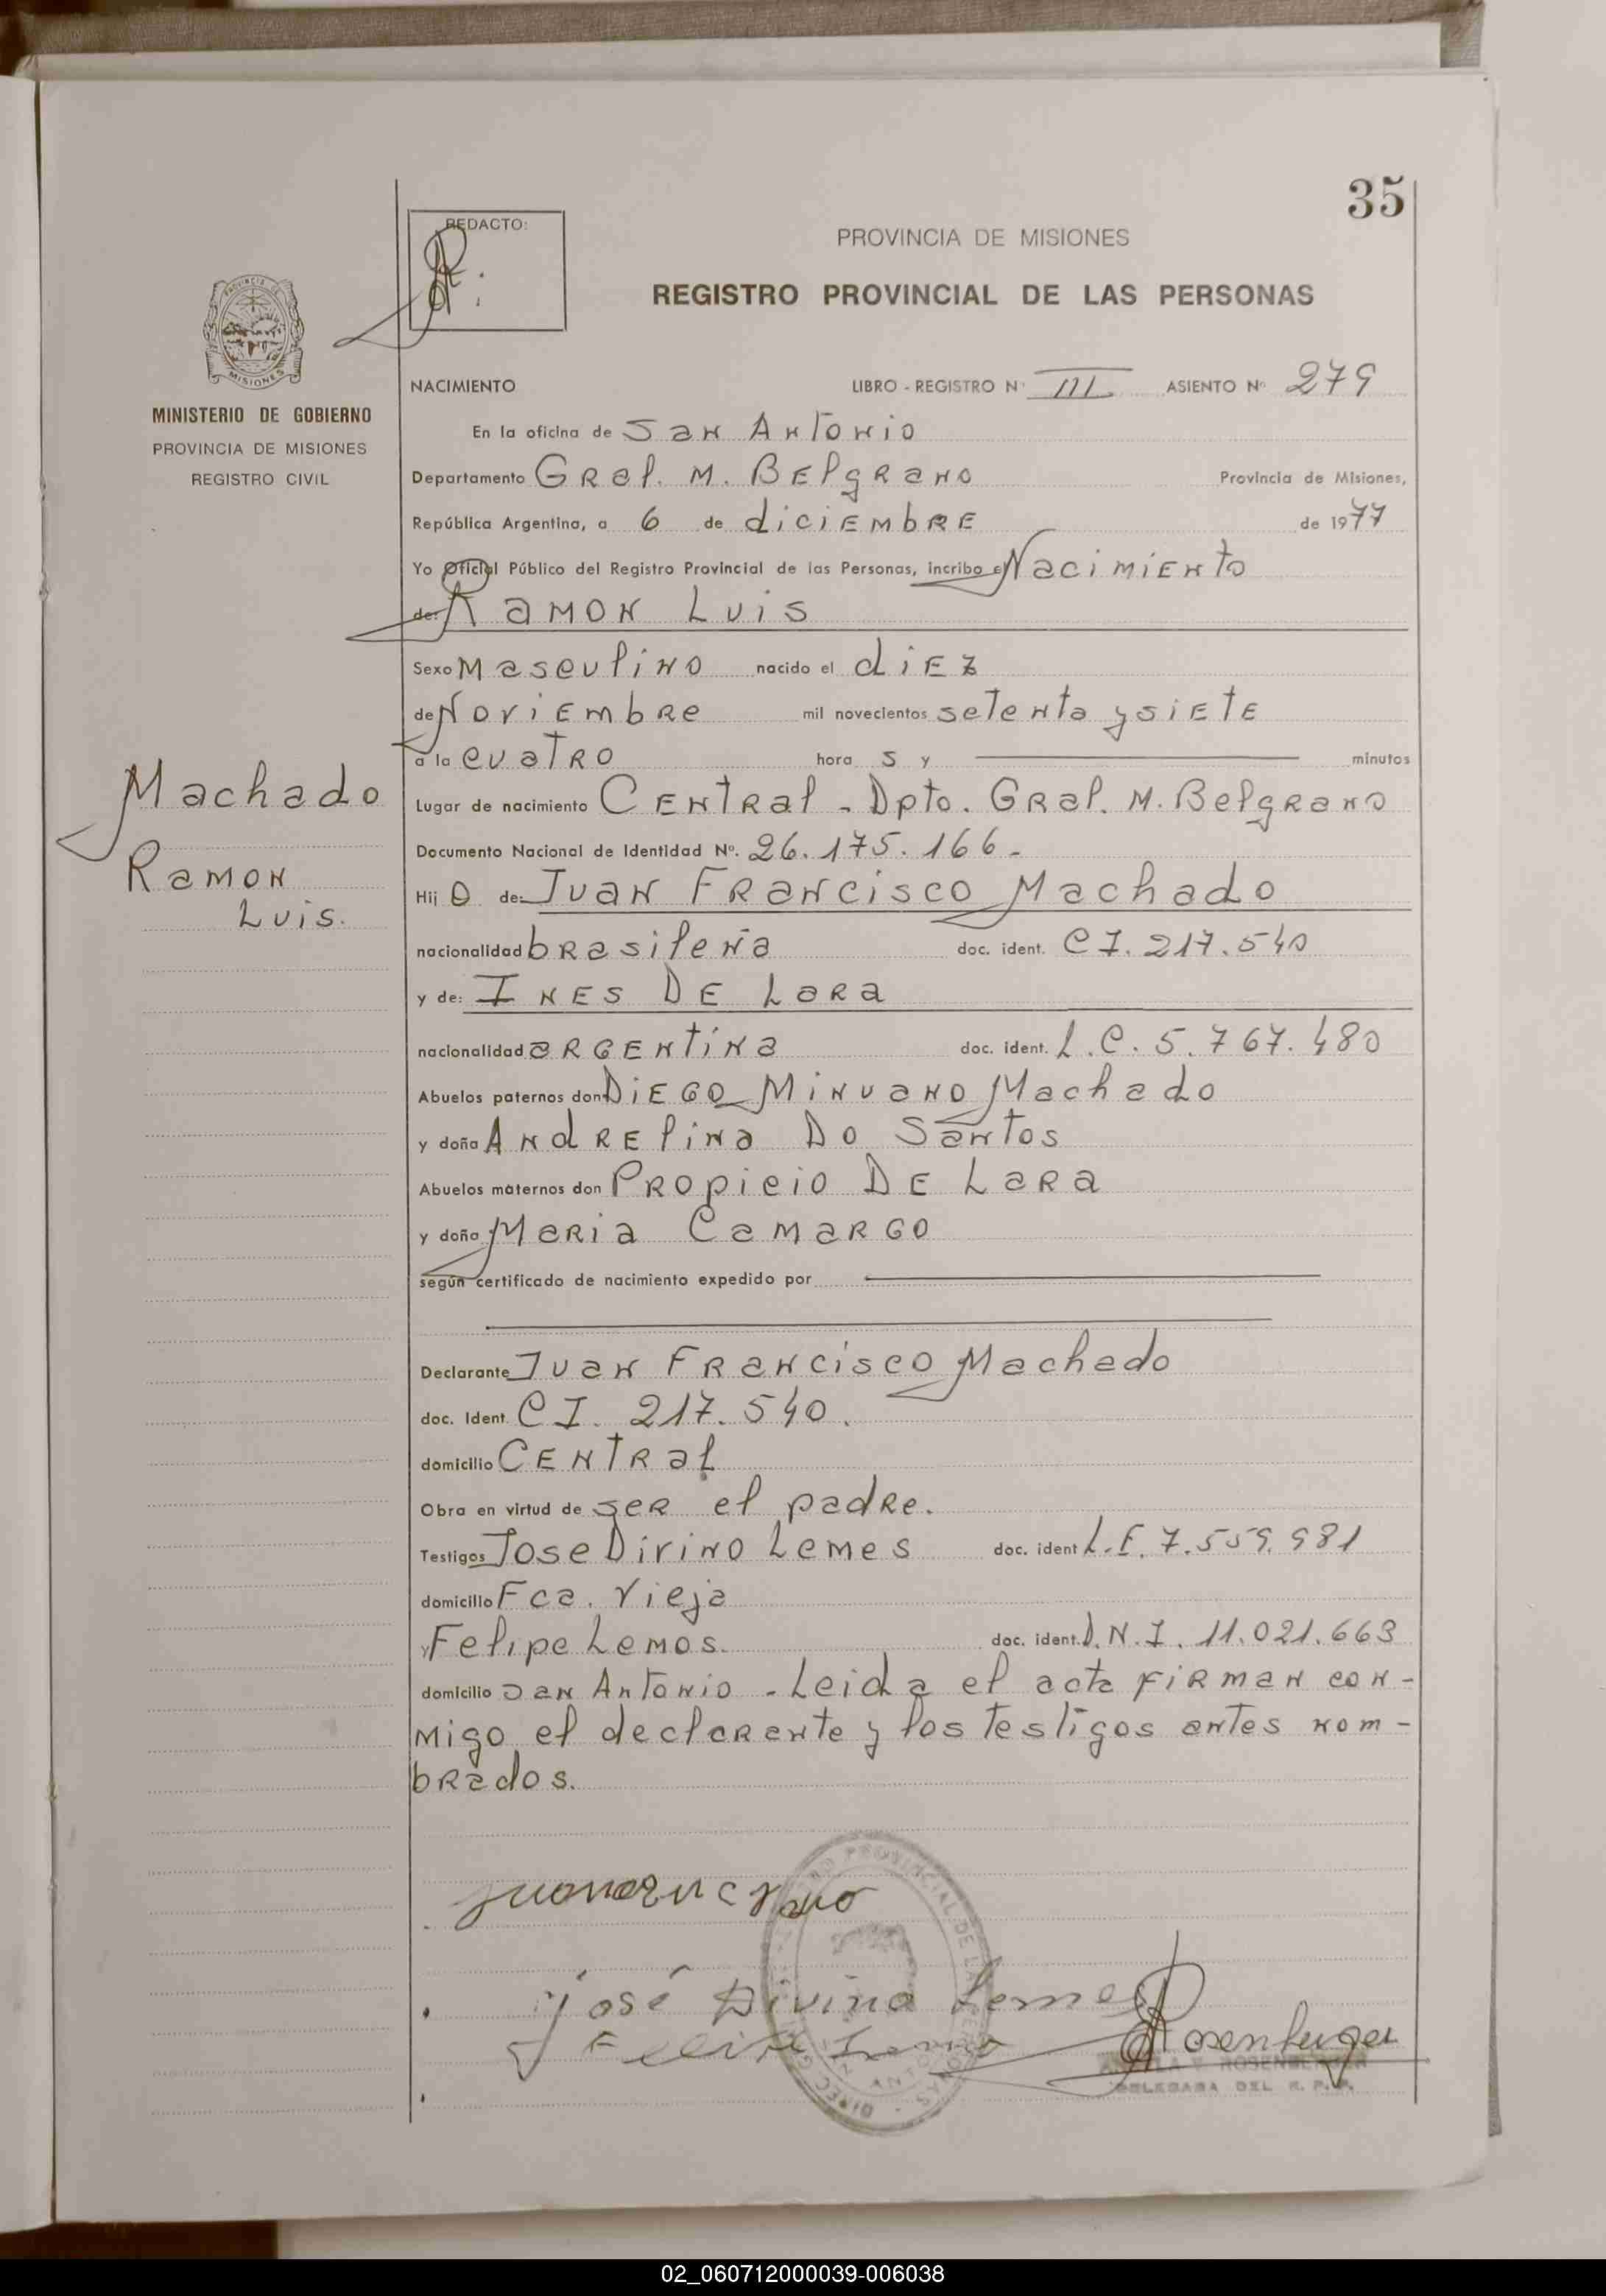 35
REDACTO:
PROVINCIA DE MISIONES
REGISTRO PROVINCIAL DE LAS PERSONAS
MISIONES
MINISTERIO DE GOBIERNO
PROVINCIA DE MISIONES
REGISTRO CIVIL
NACIMIENTO LIBRO - REGISTRO Nº III ASIENTO Nº 279
En la oficina de San Antonio
Departamento Gral. M. Belgrano Provincia de Misiones,
República Argentina, a 6 de diciembre de 1977
Yo Oficial Público del Registro Provincial de las Personas, incribo el Nacimiento
de: Ramon Luis
Sexo Masculino nacido el diez
de Noviembre mil novecientos setenta y siete
a la cuatro hora s y minutos
Lugar de nacimiento Central - Dpto. Gral. M. Belgrano
Documento Nacional de Identidad Nº. 26.175.166.-
Hij o de: Juan Francisco Machado
nacionalidad brasileña doc. ident. C I. 217.540
y de: Ines De Lara
nacionalidad argentina doc. ident. L.C. 5.767.480
Abuelos paternos don Diego Minuano Machado
y doña Andrelina Do Santos
Abuelos maternos don Propicio De Lara
y doña Maria Camargo
según certificado de nacimiento expedido por
Machado
Ramon
Luis.
Declarante Juan Francisco Machado
doc. Ident. C I. 217.540.
domicilio Central
Obra en virtud de ser el padre.
Testigos Jose Divino Lemes doc. ident L.E. 7.559.981
domicilio Fca. Vieja
y Felipe Lemos. doc. ident. D.N.I. 11.021.663
domicilio San Antonio - Leida el acta firman con-
migo el declarante y los testigos antes nom-
brados.
José Divino Lemes
Rosenberger
DELEGADA DEL R. P. P.
02_060712000039-006038